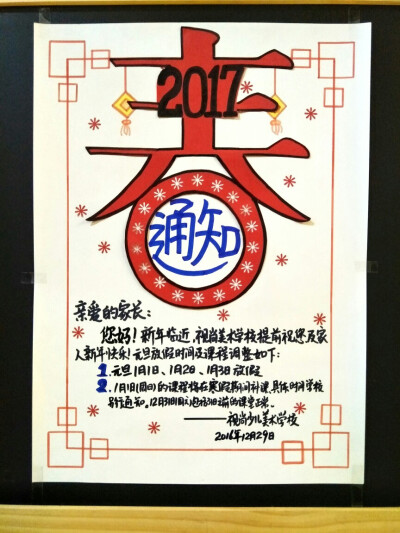 春
2017
通知
亲爱的家长:
您好!新年临近,视尚美术学校提前祝您及家
人新年快乐!元旦放假时间及课程调整如下:
1.元旦1月1日、1月2日、1月3日放假
2.1月1日(周日)的课程将在寒假期间补课,具体时间学校
另行通知,12月31日(周六)
的课堂正常。
——视尚少儿美术学校
2016年12月29日